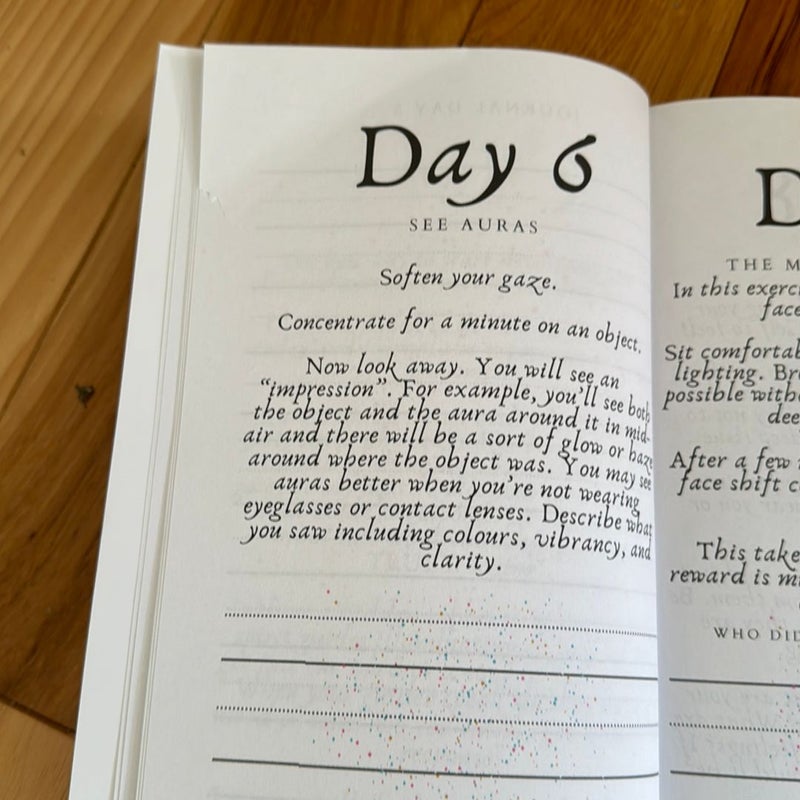 Day 6
SEE AURAS
Soften your gaze.
Concentrate for a minute on an object.
Now look away. You will see an
“impression”. For example, you’ll see both
the object and the aura around it in mid-
air and there will be a sort of glow or haze
around where the object was. You may see
auras better when you’re not wearing
eyeglasses or contact lenses. Describe what
you saw including colours, vibrancy, and
clarity.
D
THE M
In this exerci
face
Sit comfortab
lighting. Bre
possible witho
dee
After a few
face shift c
This take
reward is m
WHO DID